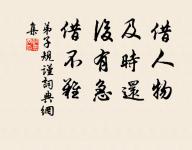 借人物
及時還
後有急
借不難
弟子規謹詞典網
集